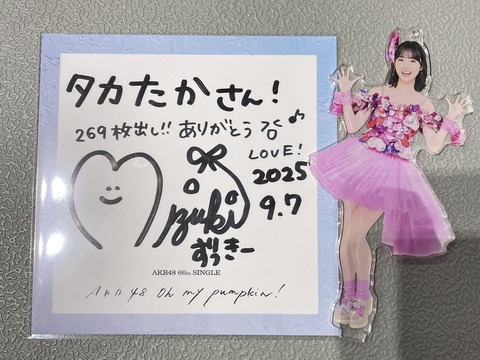 タカたかさん!
269枚出し!! ありがとう
LOVE!
2025
9.7
Mizuki
ずっきー
AKB48 66th SINGLE
AKB48 Oh my pumpkin!